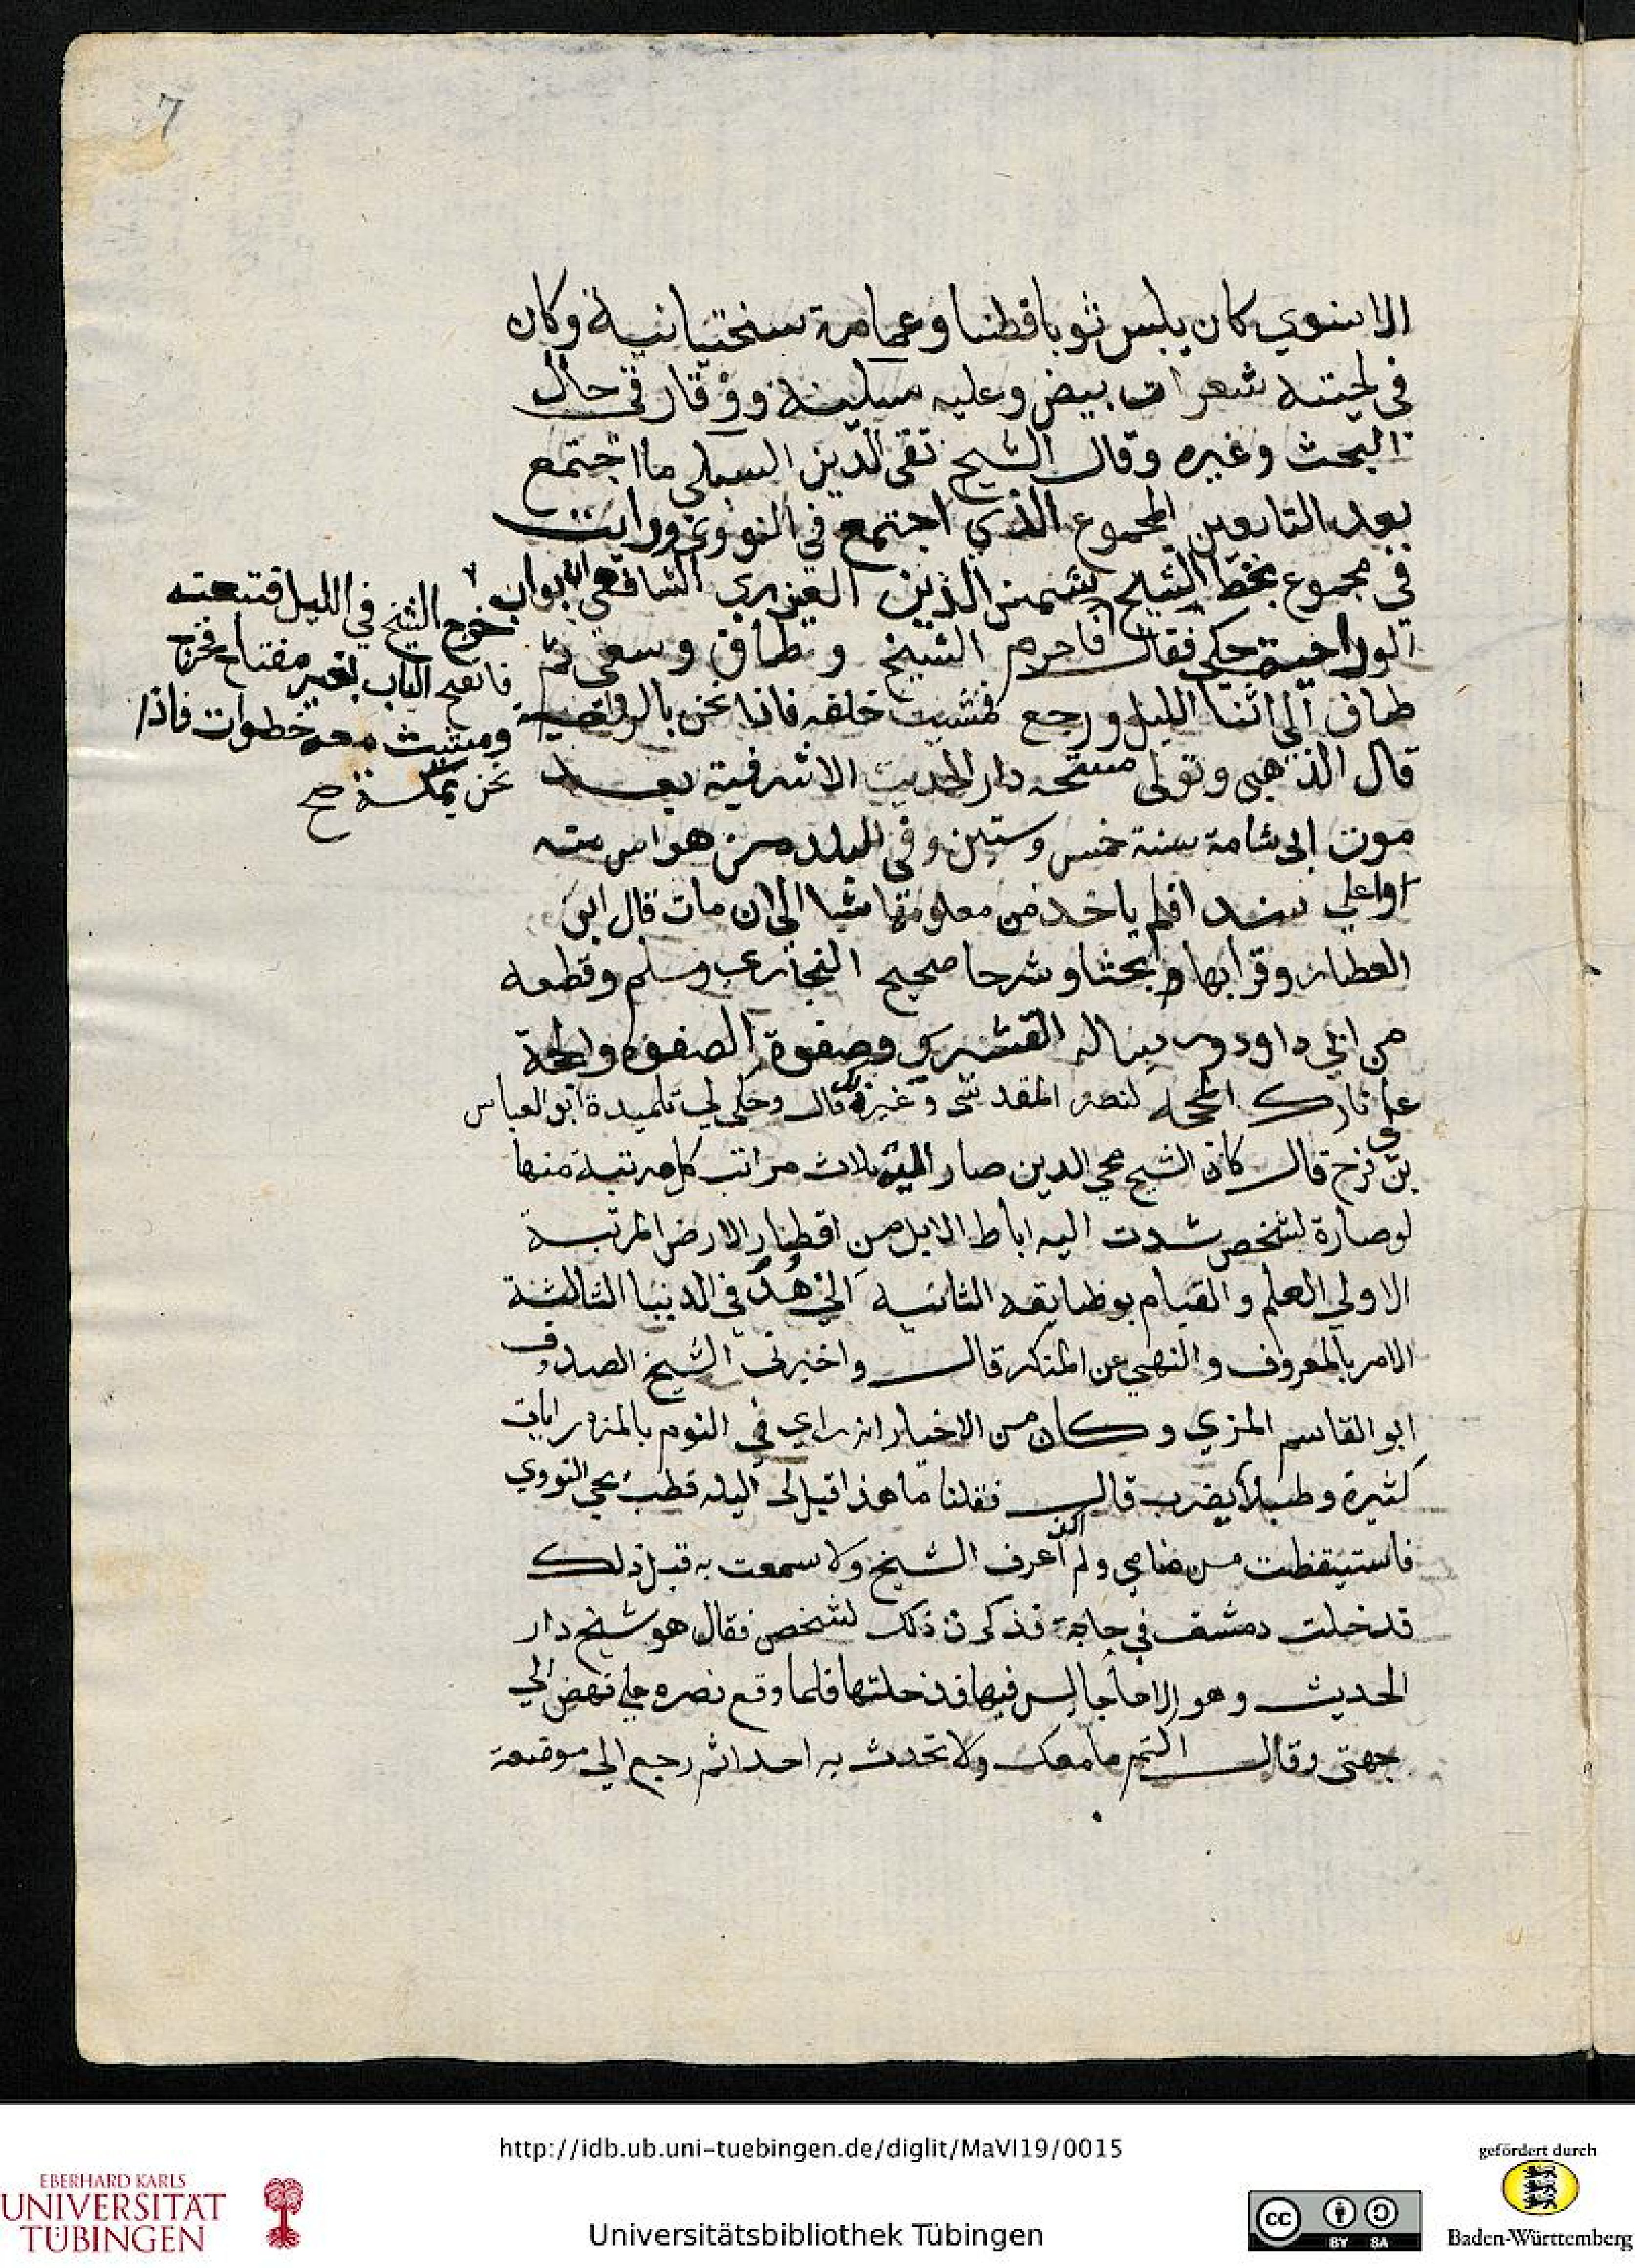 7
الاسنوي كان يلبس ثوبا قطنا وعمامة سنختيانية وكان
في لحيته شعرات بيض وعليه سكينة ووقار في حال
البحث وغيره وقال الشيخ تقى الدين السبكي ما اجتمع
بعد التابعين المجموع الذي اجتمع في النووي ورايت
في مجموع بخط الشيخ شمس الدين العيزري الشافعي ان بواب
الرواحية حكى فقال فاحرم الشيخ وطاف وسعى ثم
خرج الشيخ في الليل فتبعته
فانفتح الباب بغير مفتاح فخرج
ومشيت معه خطوات فاذا
نحن بمكة صح
طاف الى اثنا الليل ورجع فمشيت خلفه فاذا نحن بالرواحية
قال الذهبي وتولى مشيخة دار الحديث الاشرفية بعد
موت ابى شامة سنة خمس وستين وفي البلد من هو اسن منه
او اعلي سندا فلم ياخذ من معلومها شيا الى ان مات قال ابن
العطار وقرا بها بحثا وشرحا صحيح البخاري ومسلم وقطعه
من ابي داود ورساله القشيري وصفوة الصفوه والحجة
على تارك المحجه لنصر المقدسى وغيره قال وحكي لي تلميدة ابو العباس
بن فرح قال كان الشيخ محي الدين صار اليه ثلاث مراتب كل مرتبة منها
لو صارة لشخص شدت اليه اباط الابل من اقطار الارض المرتبة
الاولي العلم والقيام بوظايفه الثانية الزهد في الدنيا الثالثة
الامر بالمعروف والنهي عن المنكر قال واخبرني الشيخ الصدوق
ابو القاسم المزي وكان من الاخيار انه راي في النوم بالمزه رايات
كثيرة وطبلا يضرب قال فقلنا ما هذا قيل لى اليله قطب يحي النووي
فاستيقظت من منامي ولم اكن اعرف الشيخ ولا سمعت به قبل ذلك
فدخلت دمشق في حاجة فذكرت ذلك لشخص فقال هو شيخ دار
الحديث وهو الان جالس فيها فدخلتها فلما وقع نصره علي نهض الي
جهتى وقال اكتم ما معك ولا تحدث به احدا ثم رجع الي موضعه
http://idb.ub.uni-tuebingen.de/diglit/MaVI19/0015
EBERHARD KARLS
UNIVERSITÄT
TÜBINGEN
Universitätsbibliothek Tübingen
cc BY SA
gefördert durch
Baden-Württemberg